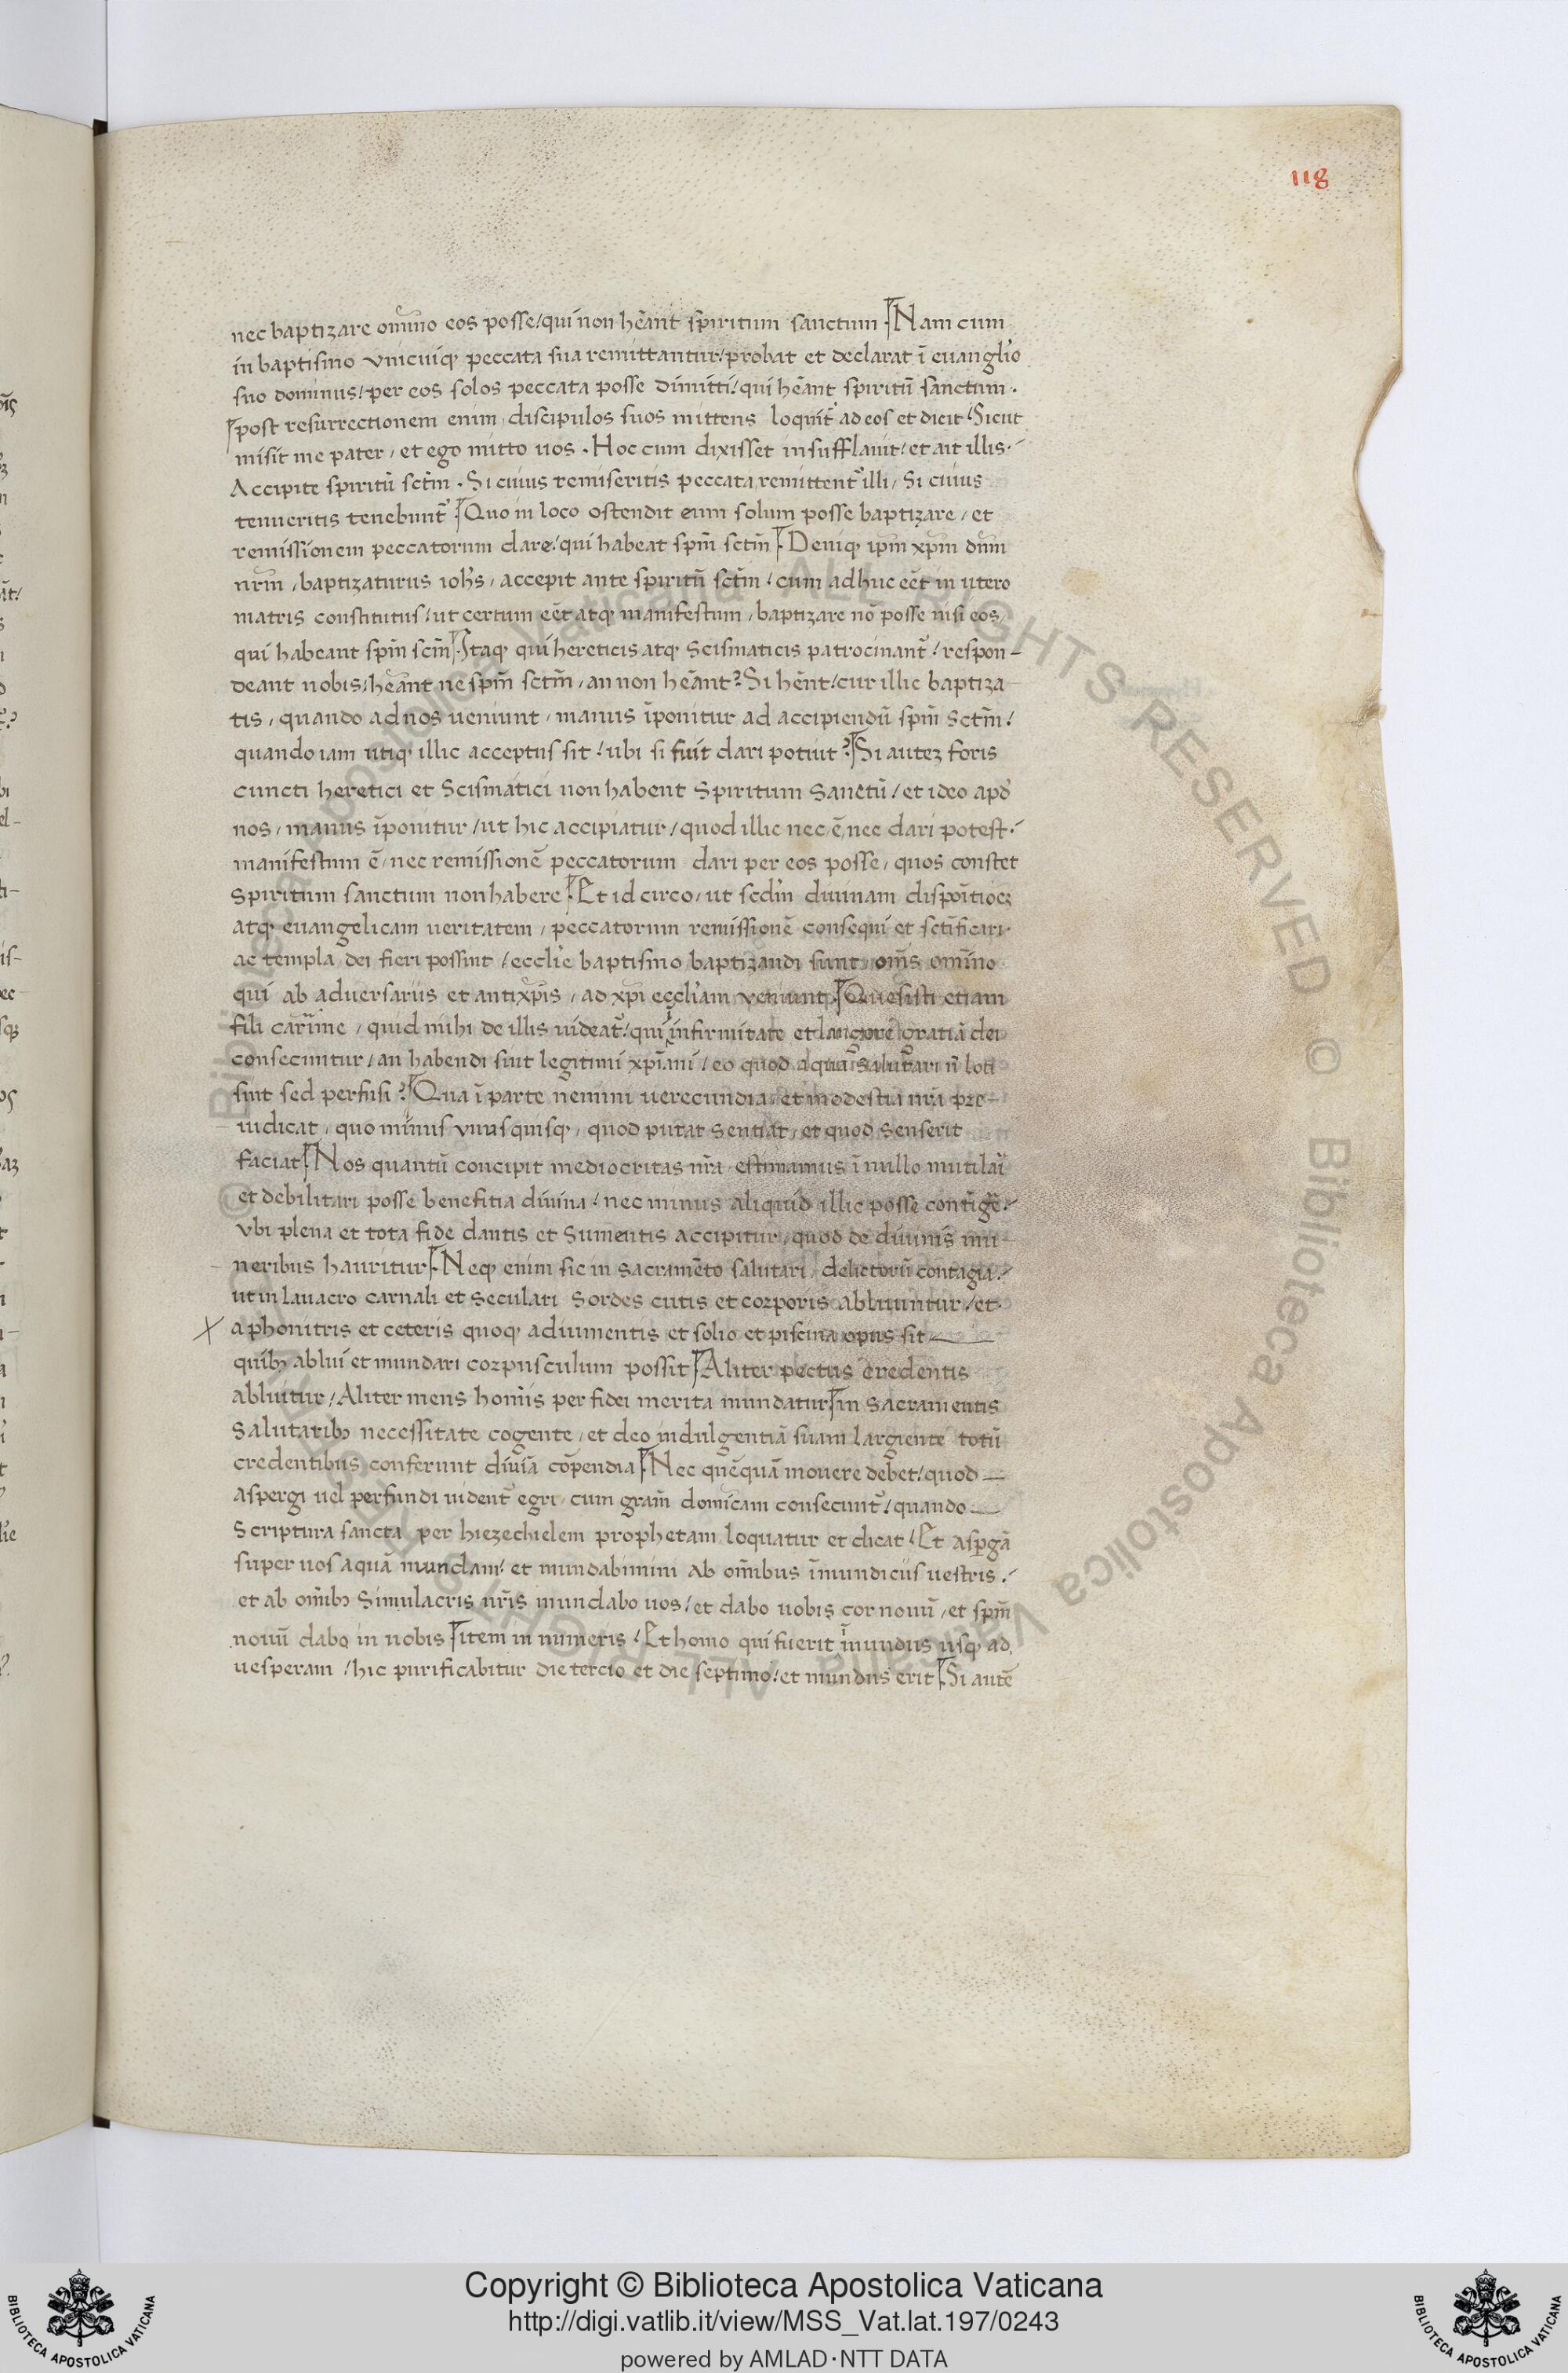 118
nec baptizare om̅i̅no eos posse/qui non he̅ant spiritum sanctum. Nam cum
in baptismo vnicuiq; peccata sua remittantur/probat et declarat i̅ euanglio
suo dominus/per eos solos peccata posse dimitti/qui he̅ant spiritu̅ sanctum.
post resurrectionem enim, discipulos suos mittens loquit᷑ ad eos et dicit/Sicut
misit me pater, et ego mitto uos. Hoc cum dixisset insufflauit/et ait illis./
Accipite spiritu̅ sct̅m. Si cuius remiseritis peccata, remittent᷑ illi, Si cuius
tenueritis tenebunt᷑. Quo in loco ostendit eum solum posse baptizare, et
remissionem peccatorum dare/qui habeat spm̅ sctm̅. Deniq; ipm̅ xpm̅ dnm̅
nrm̅, baptizaturus ioh̅s, accepit ante spiritu̅ sct̅m/cum adhuc ee̅t in utero
matris constitutus/ut certum ee̅t atq; manifestum, baptizare no̅ posse nisi eos,
qui habeant spm̅ scm̅. Itaq; qui hereticis atq; Scismaticis patrocinant᷑/respon-
deant nobis/he̅ant ne spm̅ sctm̅, an non he̅ant? Si he̅nt/cur illic baptiza
tis, quando ad nos ueniunt, manus i̅ponitur ad accipiendu̅ spm̅ sct̅m/
quando iam utiq; illic acceptus sit/ubi si fuit dari potuit? Si autez foris
cuncti heretici et Scismatici non habent Spiritum Sanctu̅/et ideo apd̕
nos, manus i̅ponitur/ut hic accipiatur/quod illic nec e̅, nec dari potest./
manifestum e̅, nec remissione̅ peccatorum dari per eos posse, quos constet
Spiritum sanctum non habere. Et id circo, ut scdm̅ diuinam dispoi̅tioez
atq; euangelicam ueritatem, peccatorum remissione̅ consequi et sct̅ificari.
ac templa dei fieri possint/eccli̅e baptismo baptizandi sunt om̅s om̅i̅no
qui ab aduersariis et antixpi̅s, ad xpi̅ eccli̅am veniunt. Quesisti etiam
fili carime, quid mihi de illis uideat᷑/qui infirmitate et langore gratia̅ dei
consecuntur/an habendi sint legitimi xpi̅ani/eo quod aqua salutari n̅ loti
sint sed perfusi? Qua i̅ parte nemini uerecundia et modestia nr̅a pre-
iudicat, quo minus vnusquisq;, quod putat Sentiat, et quod Senserit
faciat. Nos quantu̅ concipit mediocritas nr̅a estimamus i̅ nullo mutilari
et debilitari posse benefitia diuina/nec minus aliquid illic posse conti̅ge̅./
vbi plena et tota fide dantis et Sumentis accipitur, quod de diuinis mu
neribus hauritur. Neq; enim sic in sacrame̅to salutari, delictoru̅ contagia./
ut in lauacro carnali et Seculari Sordes cutis et corporis abluuntur/et.
aphonitris et ceteris quoq; adiumentis et solio et piscina opus sit
quib; ablui et mundari corpusculum possit. Aliter pectus credentis
abluitur, Aliter mens homi̅s per fidei merita mundatur. in Sacramentis
Salutarib; necessitate cogente, et deo indulgentia̅ suam largiente totu̅
credentibus conferunt diui̅a co̅pendia. Nec que̅qua̅ mouere debet/quod
aspergi uel perfundi uident᷑ egri, cum gram̅ domi̅cam consecunt᷑/quando
Scriptura sancta per hiezechielem prophetam loquatur et dicat/Et asperga̅
super uos aqua̅ mundam/et mundabimini ab om̅ibus i̅mundiciis uestris./
et ab om̅ib; Simulacris ur̅is mundabo uos/et dabo uobis cor nouu̅, et spm̅
nouu̅ dabo in uobis. item in numeris/Et homo qui fuerit i̅mundus usq; ad
uesperam/hic purificabitur die tercio et die septimo/et mundus erit. Si aute̅
© Biblioteca Apostolica Vaticana ALL RIGHTS RESERVED
Copyright © Biblioteca Apostolica Vaticana
http://digi.vatlib.it/view/MSS_Vat.lat.197/0243
powered by AMLAD·NTT DATA
BIBLIOTECA APOSTOLICA VATICANA
BIBLIOTECA APOSTOLICA VATICANA